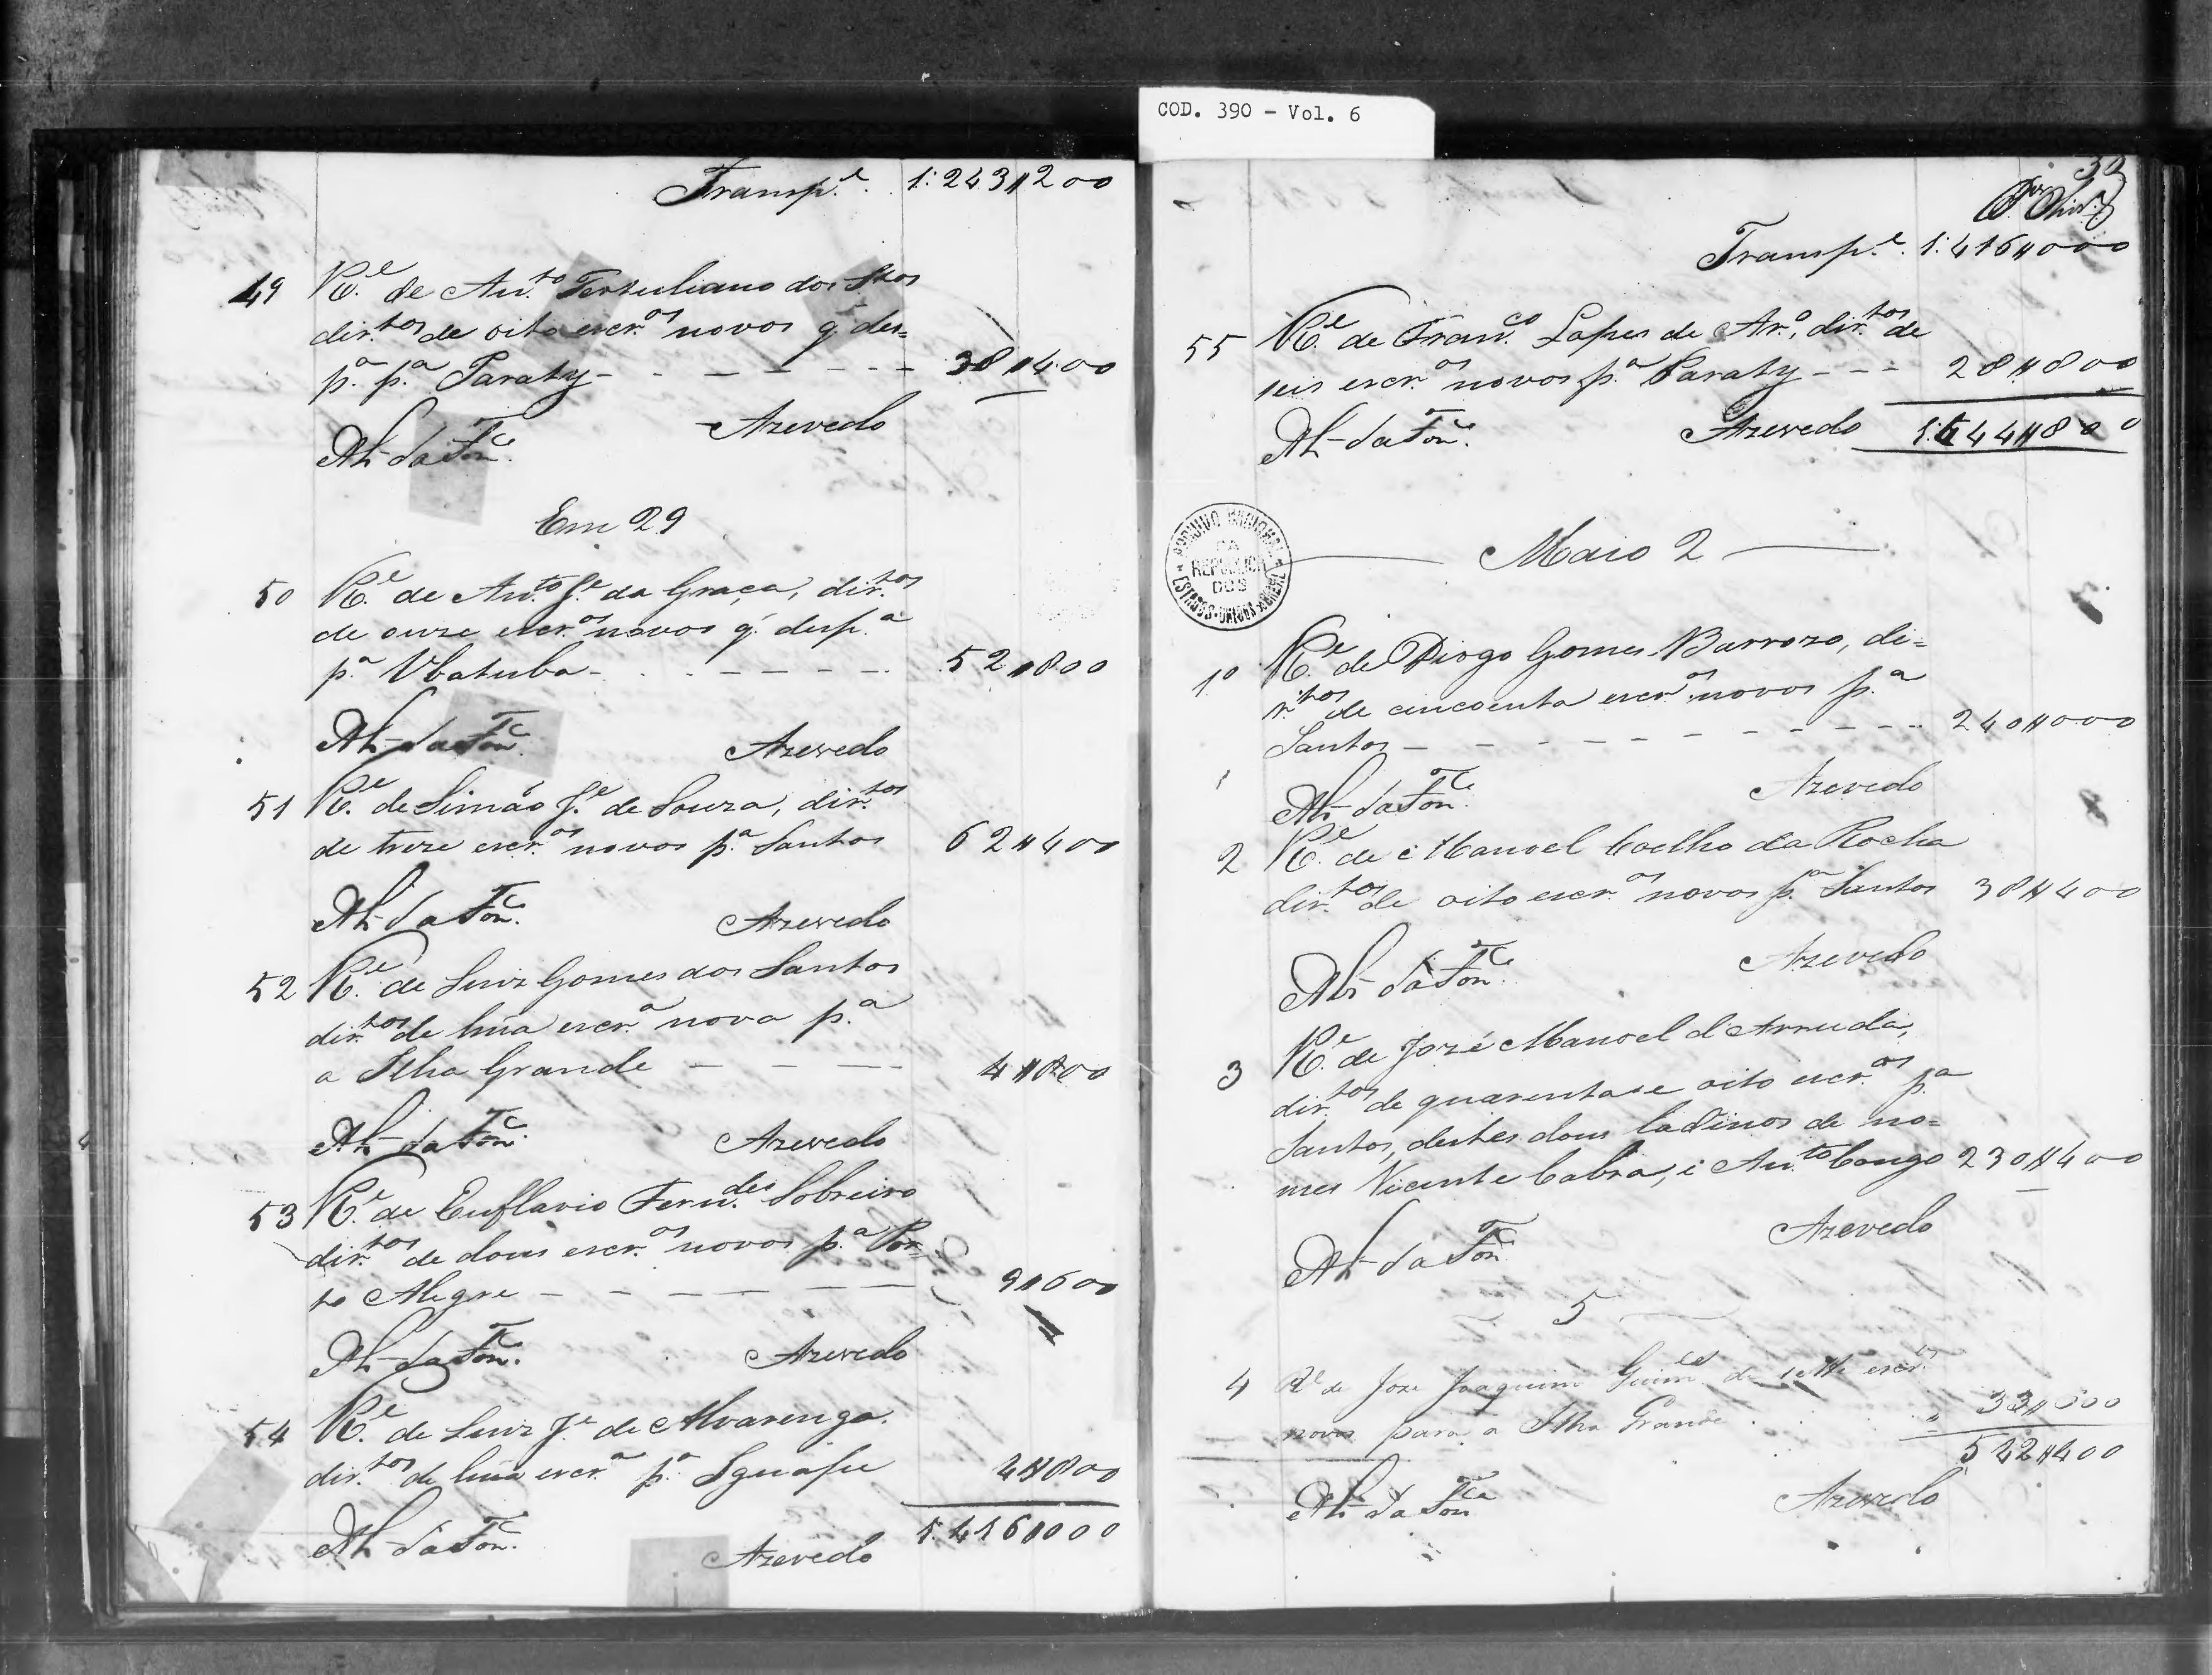 COD. 390 - Vol. 6
Transp.e 1:243#200
49 R.e de An.to Tertuliano dos S.tos
dir.tos de oito escr.os novos q' des=
p.a p.a Paraty - - - - - - - 38#400
Azevedo
Em 29
50 R.e de An.to J.e da Graça, dir.tos
de onze escr.os novos q' desp.a
p.a Ubatuba - - - - - - 52#800
Azevedo
51 R.e de Simão J.e de Souza, dir.tos
de treze escr.os novos p.a Santos 62#400
Azevedo
52 R.e de Luiz Gomes dos Santos
dir.tos de hũa escr.a nova p.a
a Ilha Grande - - - - 4#800
Azevedo
53 R.e de Euflavio Fern.des Sobreiro
dir.tos de dous escr.os novos p.a Por=
to Alegre - - - - - - 9#600
Azevedo
54 R.e de Luiz J.e de Alvarenga.
dir.tos de hũa escr.a p.a Iguasu 4#800
1:416#000
Azevedo
50
Transp.e 1:416#000
55 R.e de Fran.co Lopes de Ar.o, dir.tos de
seis escr.os novos p.a Paraty - - - 28#800
Azevedo 1:444#800
ARQUIVO NACIONAL
DA
REPUBLICA
DOS
ESTADOS UNIDOS BRASIL
Maio 2
1o R.e de Diogo Gomes Barrozo, di=
r.tos de cincoenta escr.os novos p.a
Santos - - - - - - - - - - 240#000
Azevedo
2 R.e de Manoel Coelho da Rocha
dir.tos de oito escr.os novos p.a Santos 38#400
Azevedo
3 R.e de José Manoel d'Arruda,
dir.tos de quarenta e oito escr.os p.a
Santos, destes dous ladinos de no=
mes Vicente Cabra, e An.to Congo 230#400
Azevedo
5
4 R.e de Joze Joaquim Guim.es de sette escr.os
novos para a Ilha Grande 33#600
542#400
Azevedo